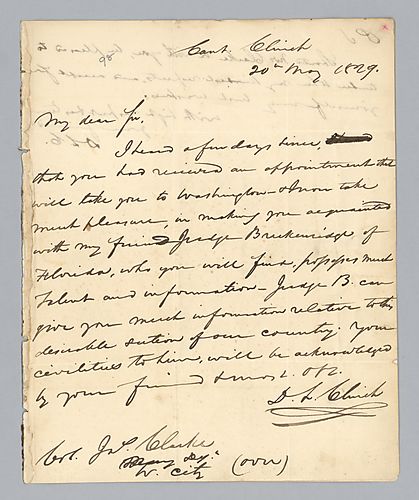 Cant. Clinch
20th May 1829.
My dear Sir,
I heard a few days since,
that you had received an appointment that
will take you to Washington - & I now take
much pleasure, in making you acquainted
with my friend Judge Breckenridge of
Florida, who you will find, possesses much
talent and information - Judge B. can
give you much information relative to this
desirable section of our country. Your
civilities to him, will be acknowledged
by your friend & most. obt.
D L Clinch
Col. Jas. Clarke
W. City
(over)